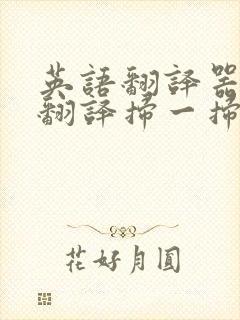 英語翻譯器
翻譯掃一掃
花好月圓